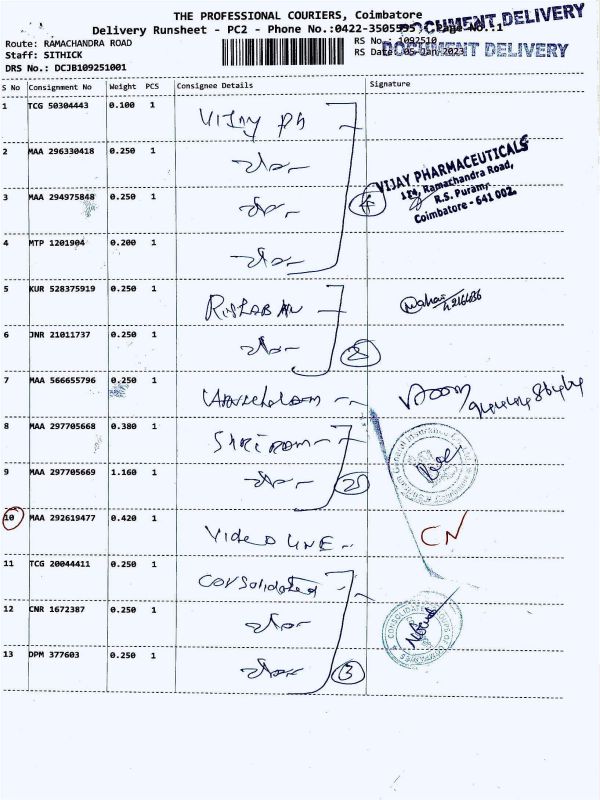 THE PROFESSIONAL COURIERS, Coimbatore
Delivery Runsheet - PC2 - Phone No.:0422-3505555 Page No.:1
DOCUMENT DELIVERY
DOCUMENT DELIVERY
Route: RAMACHANDRA ROAD
RS No.: 1092510
Staff: SITHICK
RS Date: 05-Jan-2023
DRS No.: DCJB109251001
S No Consignment No Weight PCS Consignee Details Signature
1 TCG 50304443 0.100 1 Vijay Ph
2 MAA 296330418 0.250 1
VIJAY PHARMACEUTICALS
114, Ramachandra Road,
R.S. Puram,
Coimbatore - 641 002.
3 MAA 294975848 0.250 1 4
4 MTP 1201904 0.200 1
5 KUR 528375919 0.250 1
6 JNR 21011737 0.250 1 2
7 MAA 566655796 0.250 1
8 MAA 297705668 0.380 1 SHRIRAM
9 MAA 297705669 1.160 1
10 MAA 292619477 0.420 1 VIDEO LINE CN
11 TCG 20044411 0.250 1 Consolidated
12 CNR 1672387 0.250 1
13 DPM 377603 0.250 1 3